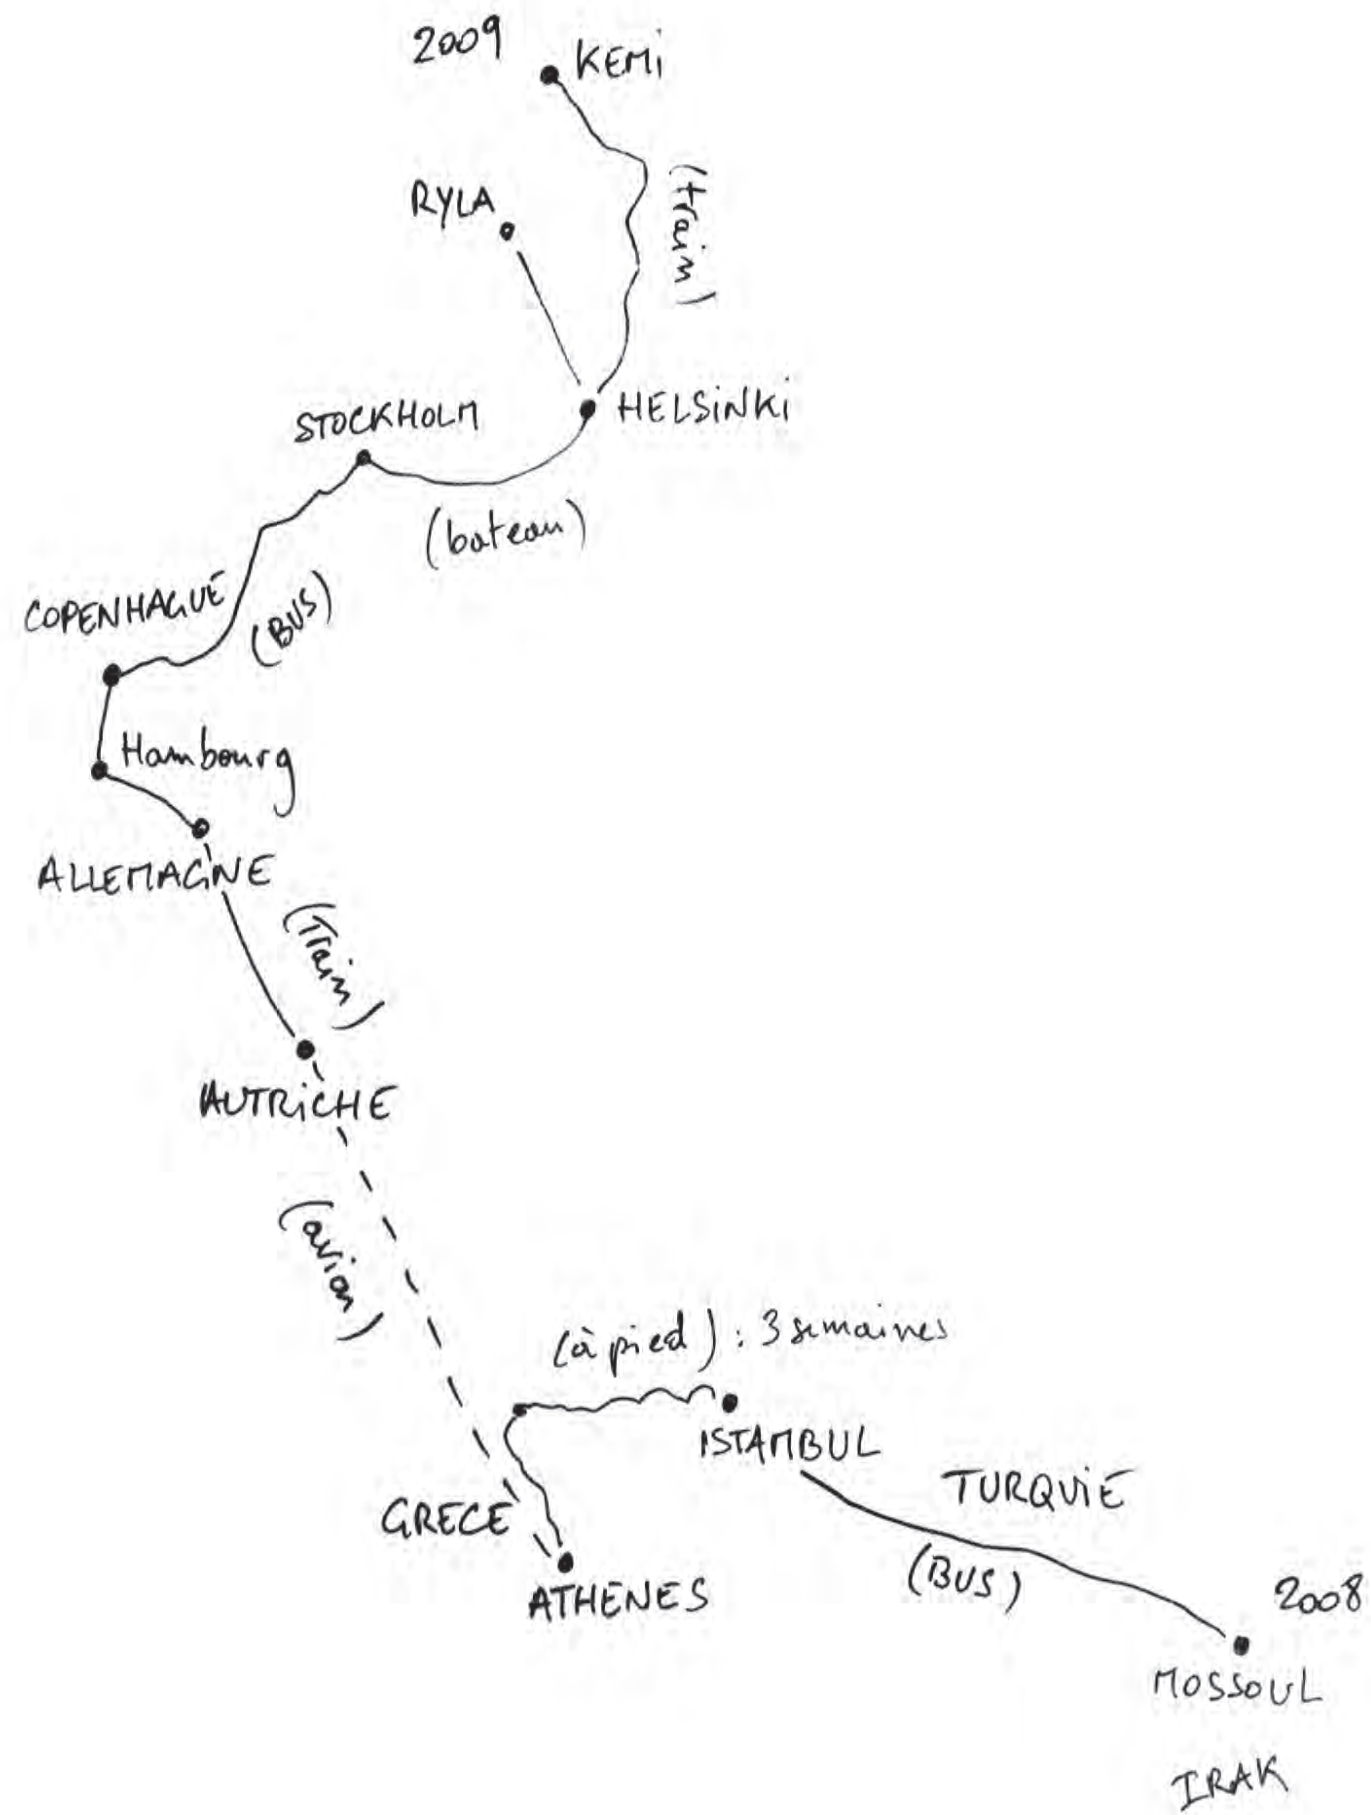 2009
KEMi
RYLA
(train)
STOCKHOLM
HELSiNKi
(bateau)
COPENHAGUE
(BUS)
Hambourg
ALLEMAGNE
(Train)
AUTRiCHE
(avion)
(à pied) : 3 semaines
ISTAMBUL
TURQUiE
GRECE
(BUS)
2008
ATHENES
MOSSOUL
IRAK